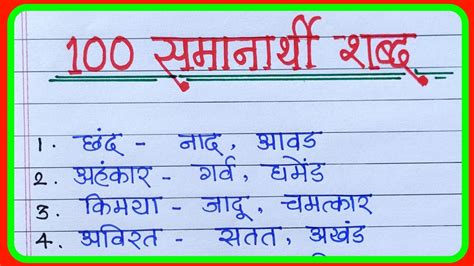 100 समानार्थी शब्द
1. छंद - नाद, आवड
2. अहंकार - गर्व, घमेंड
3. किमया - जादू, चमत्कार
4. अविरत - सतत, अखंड